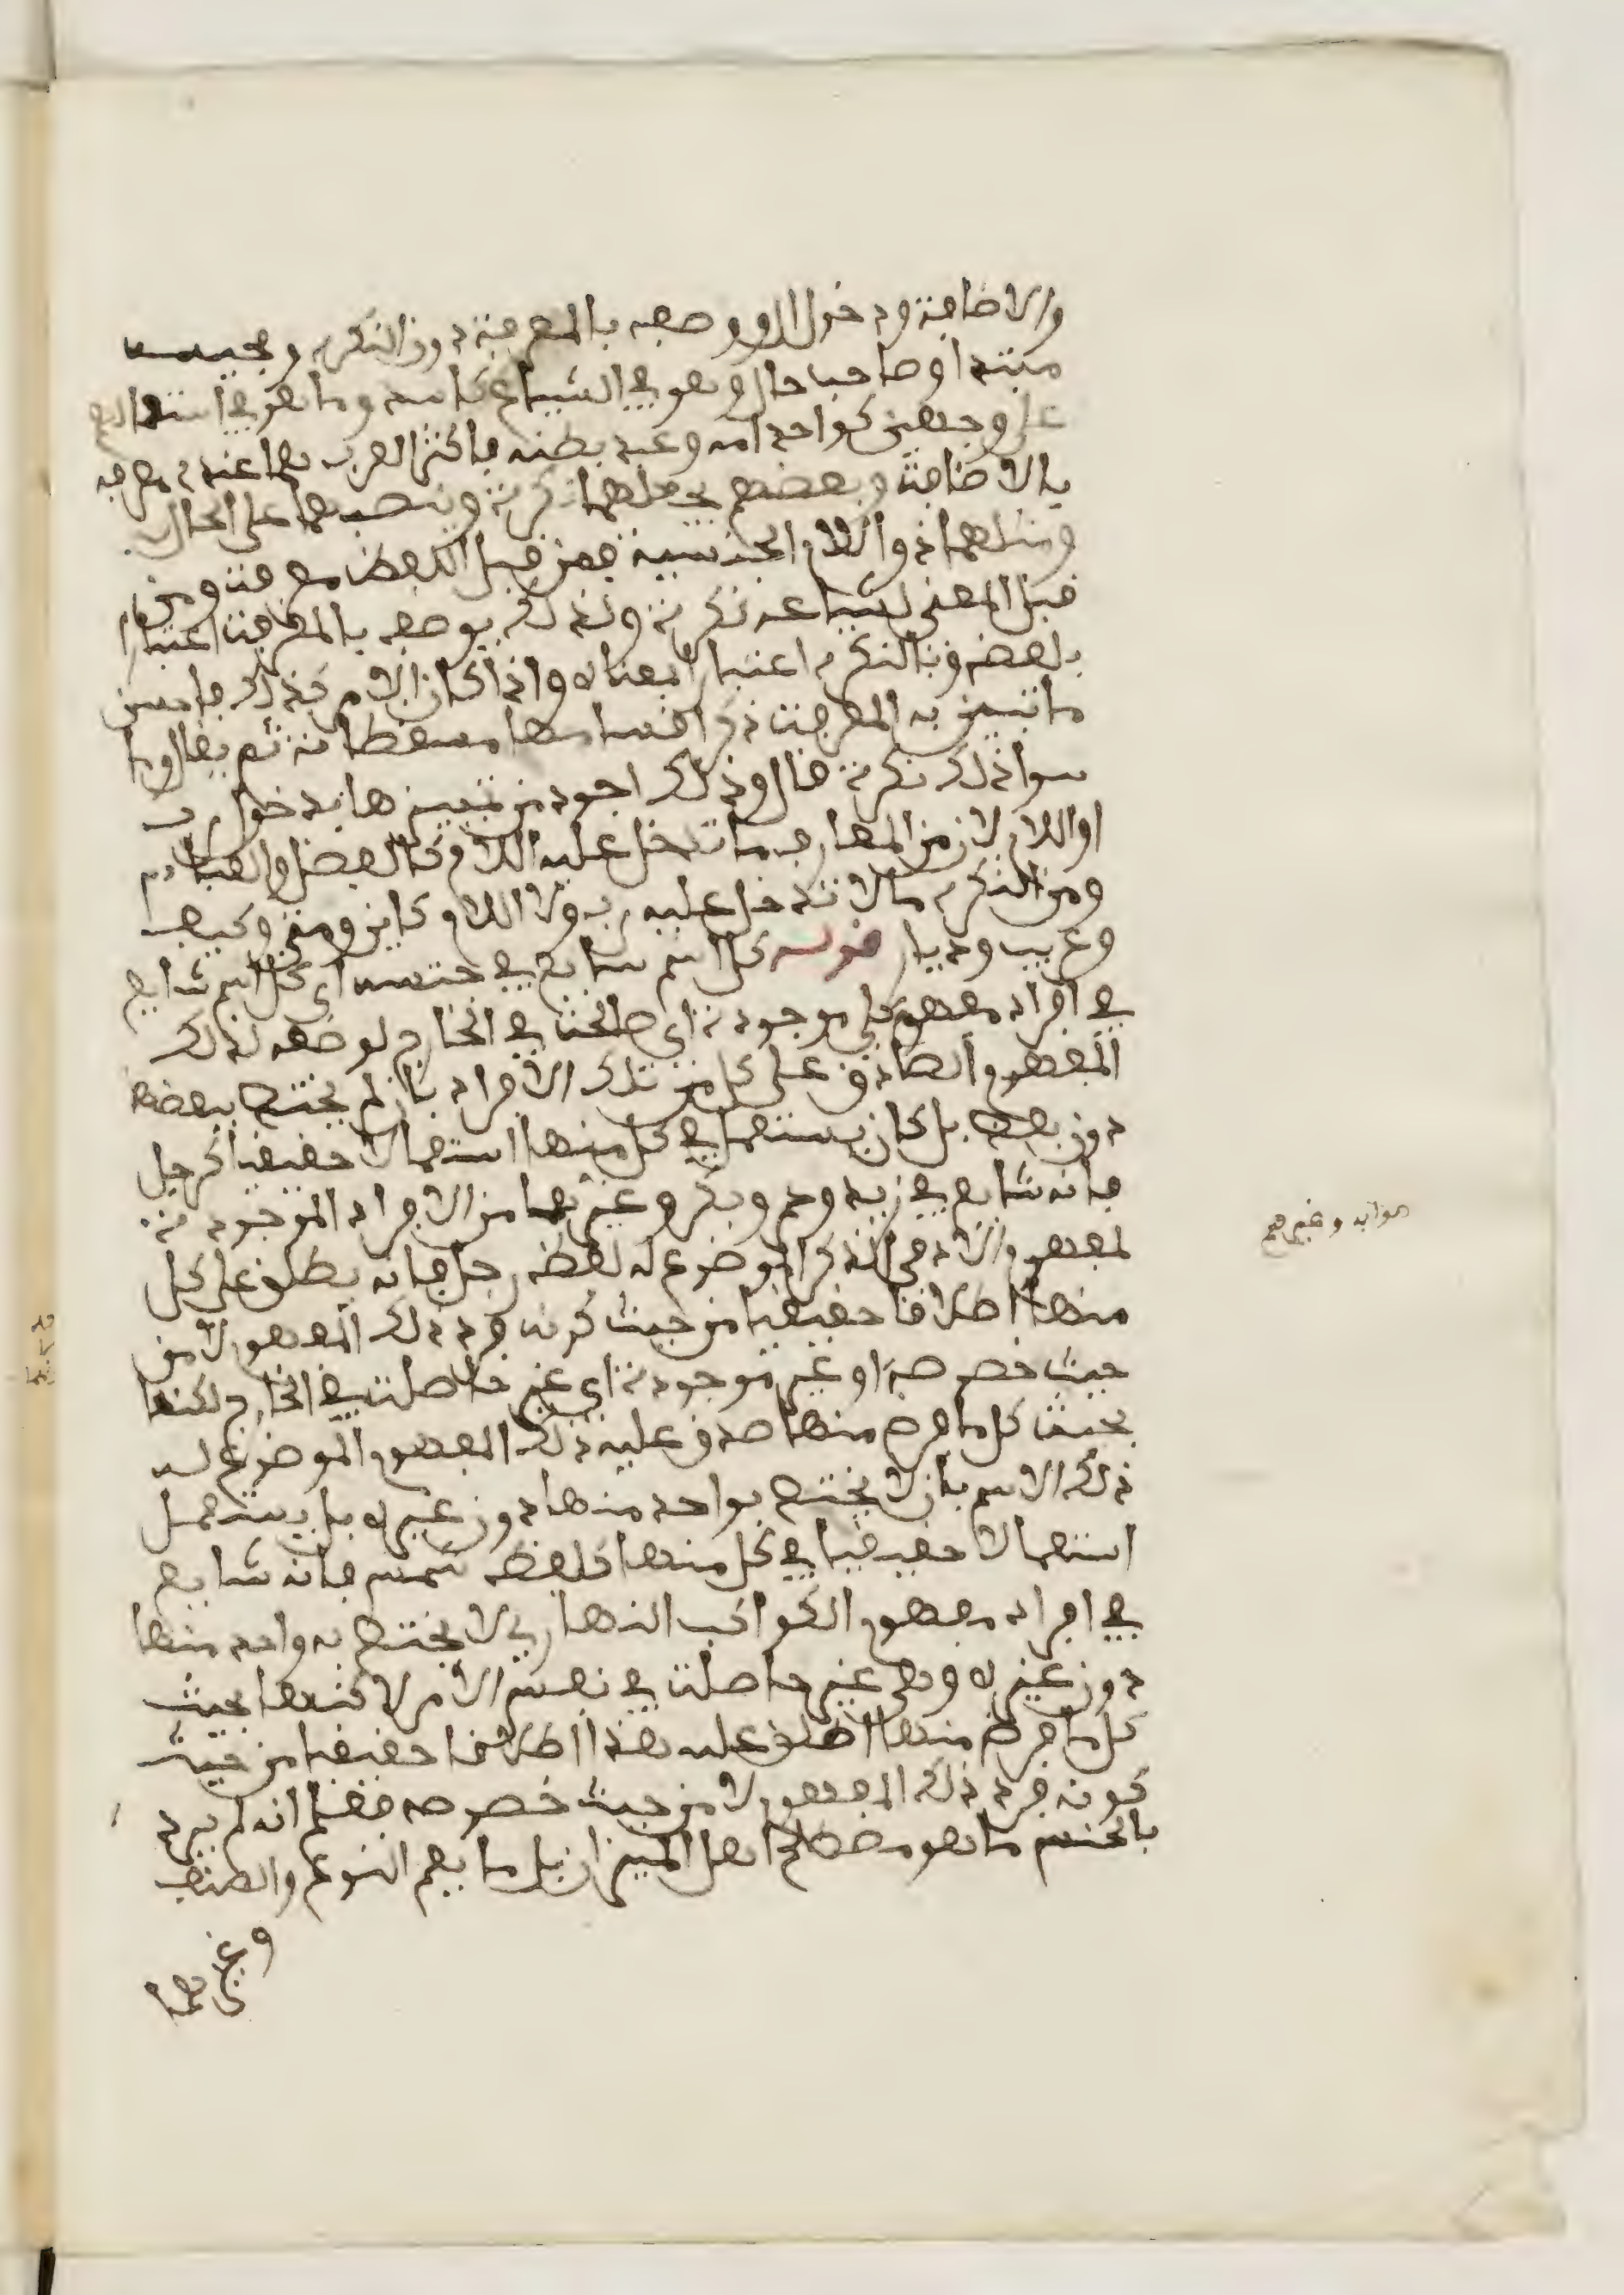 والاضافة ودخول ال ووصفه بالمعرفة دون النكرة ومجيئه
مبتدا وصاحب حال وهو في الشياع كاسد وما هو في استعماله
على وجهين كواحد امه وعبد بطنه فاكثر العرب هما عنده معرفة
بالاضافة وبعضهم يجعلهما نكرة وينصبهما على الحال
ومثلهما ذو اللام الجنسية فمن قبل اللفظ معرفة ومن
قبل المعنى لشياعه نكرة ولذلك يوصف بالمعرفة اعتبارا
بلفظه وبالنكرة اعتبارا بمعناه واذا كان الامر كذلك فاحسن
ما تتبين به المعرفة ذكر اقسامها مستقصاة ثم يقال وما
سوا ذلك نكرة قال وذلك اجود من تمييزها بدخول رب
او اللام لان من المعارف ما تدخل عليه اللام كالفضل والعباس
ومن النكرة ما لا تدخل عليه رب ولا اللام كاين ومتى وكيف
وعريب وديار قوله كل اسم شايع في جنسه اي كل اسم شايع
في افراد مفهوم كلي موجودة اي حاصلة في الخارج لوضعه لذلك
المفهوم الصادق على كل من تلك الافراد بان لم يختص ببعضها
دون بعض بل كان يستعمل في كل منها استعمالا حقيقيا كرجل
فانه شايع في زيد وعمرو وبكر وغيرهما من الافراد الموجودة
لمفهوم الادمي الذكر الموضوع له لفظه رجل فانه يطلق على كل
منها اطلاقا حقيقيا من حيث كونه فرد ذلك المفهوم لا من
حيث خصوصه او غير موجودة اي غير حاصلة في الخارج لكنها
بحيث كل ما فرض منها صدق عليه ذلك المفهوم الموضوع له
ذلك الاسم بان لا يختص بواحد منها دون غيره بل يستعمل
استعمالا حقيقيا في كل منها كلفظه شمس فانه شايع
في افراد مفهوم الكواكب النهاري لا يختص به واحد منها
دون غيره وهي غير حاصلة في نفس الامر لاكنها بحيث
كل ما فرض منها اطلق عليه هذا اطلاقا حقيقيا من حيث
كونه فرد ذلك المفهوم لا من حيث خصوصه فقد علم انه لم يرد
بالجنس ما هو مصطلح اهل الميزان بل ما يعم النوع والصنف
وغيرهما
صوابه وغيرهم